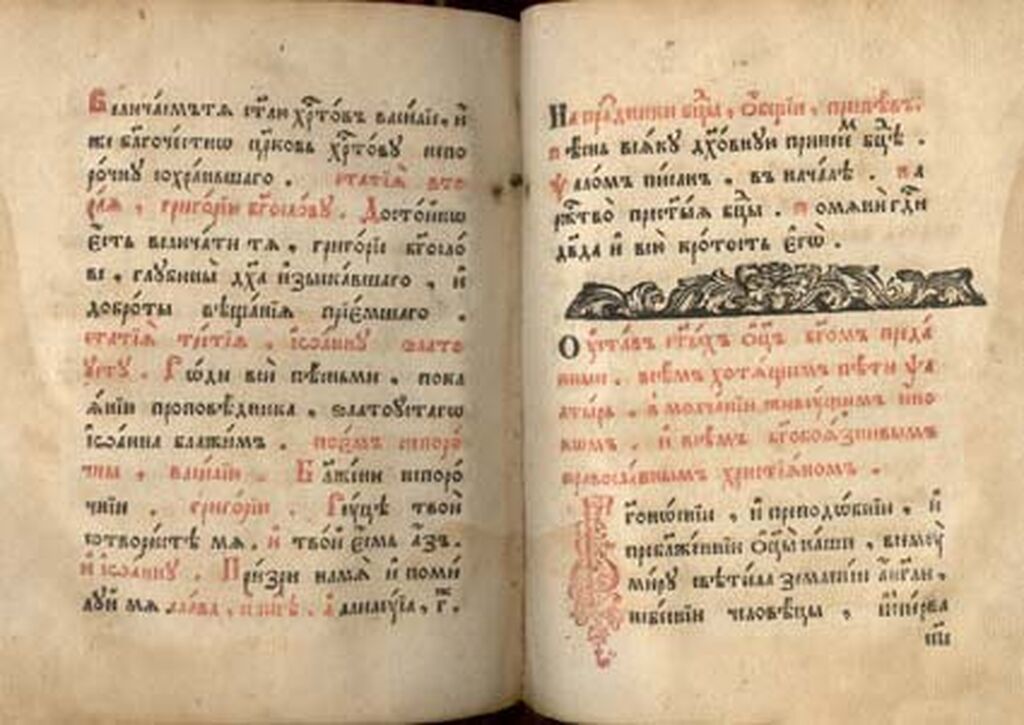 Величаемъ тѧ ст҃ли хрⷭ҇товъ василіе, и҆
же бл҃гочестиѡ цр҃ковь хрⷭ҇тову непо
ро́чну сохраньшаго . статїѧ̀ вто
ра́ѧ , григо́рїю бг҃осло́ву . Досто́йнѡ
є҆́сть велича́ти тѧ , григо́рїе бг҃осло́
ве , глубины̀ дх҃а и҆зыска́вшаго , и҆
добро́ты вѣща́нїѧ прїе́мшаго .
статїѧ̀ тре́тїѧ . і҆ѡа́нну злато
у́сту . Ро́ди всѝ пѣ́сньми . пока
ѧ́нїю проповѣ́дника , златоу́стаго
і҆ѡа́нна блажи́мъ . псало́мъ непоро́
чны , василїю . Бл҃же́ни непоро́
чнїи . григо́рїю . Ру́цѣ твоѝ
сотвори́стѣ мѧ . и҆ тво́й є҆́смь а҆́зъ .
И҆ і҆ѡа́нну . При́зри на мѧ̀ и҆ поми́
луй мѧ . сла́ва , и҆ ны́нѣ . а҆ллилу́їа , г҃ .
На пра́здники бц҃ы , о҆́бщїи , припѣ́въ .
пѣ́снь всѧ́ку дх҃о́вную принесе́мъ бц҃ѣ .
ѱало́мъ пи́санъ . въ нача́лѣ . на
ржⷭ҇тво̀ прест҃ы́ѧ бц҃ы . помѧнѝ гдⷭ҇и
дв҃да и҆ всю̀ кро́тость є҆гѡ̀ .
О у҆ста́въ ст҃ы́хъ о҆ц҃ъ бг҃омъ преда́
нный . всѣ́мъ хотѧ́щимъ пѣ́ти ѱа
лты́рь . в молча́нїи живу́щимъ и҆но
комъ . и҆ всѣ́мъ бг҃обоѧзни́вымъ
правосла́внымъ христїѧ́номъ .
Бг҃оно́снїи , и҆ преподо́бнїи , и҆
пребл҃же́ннїи о҆ц҃ы̀ на́ши , всемꙋ̀
ми́ру свѣти́ла земні́и а҆́нг҃ли ,
небе́снїи человѣ́цы , и҆̀же пе́рва